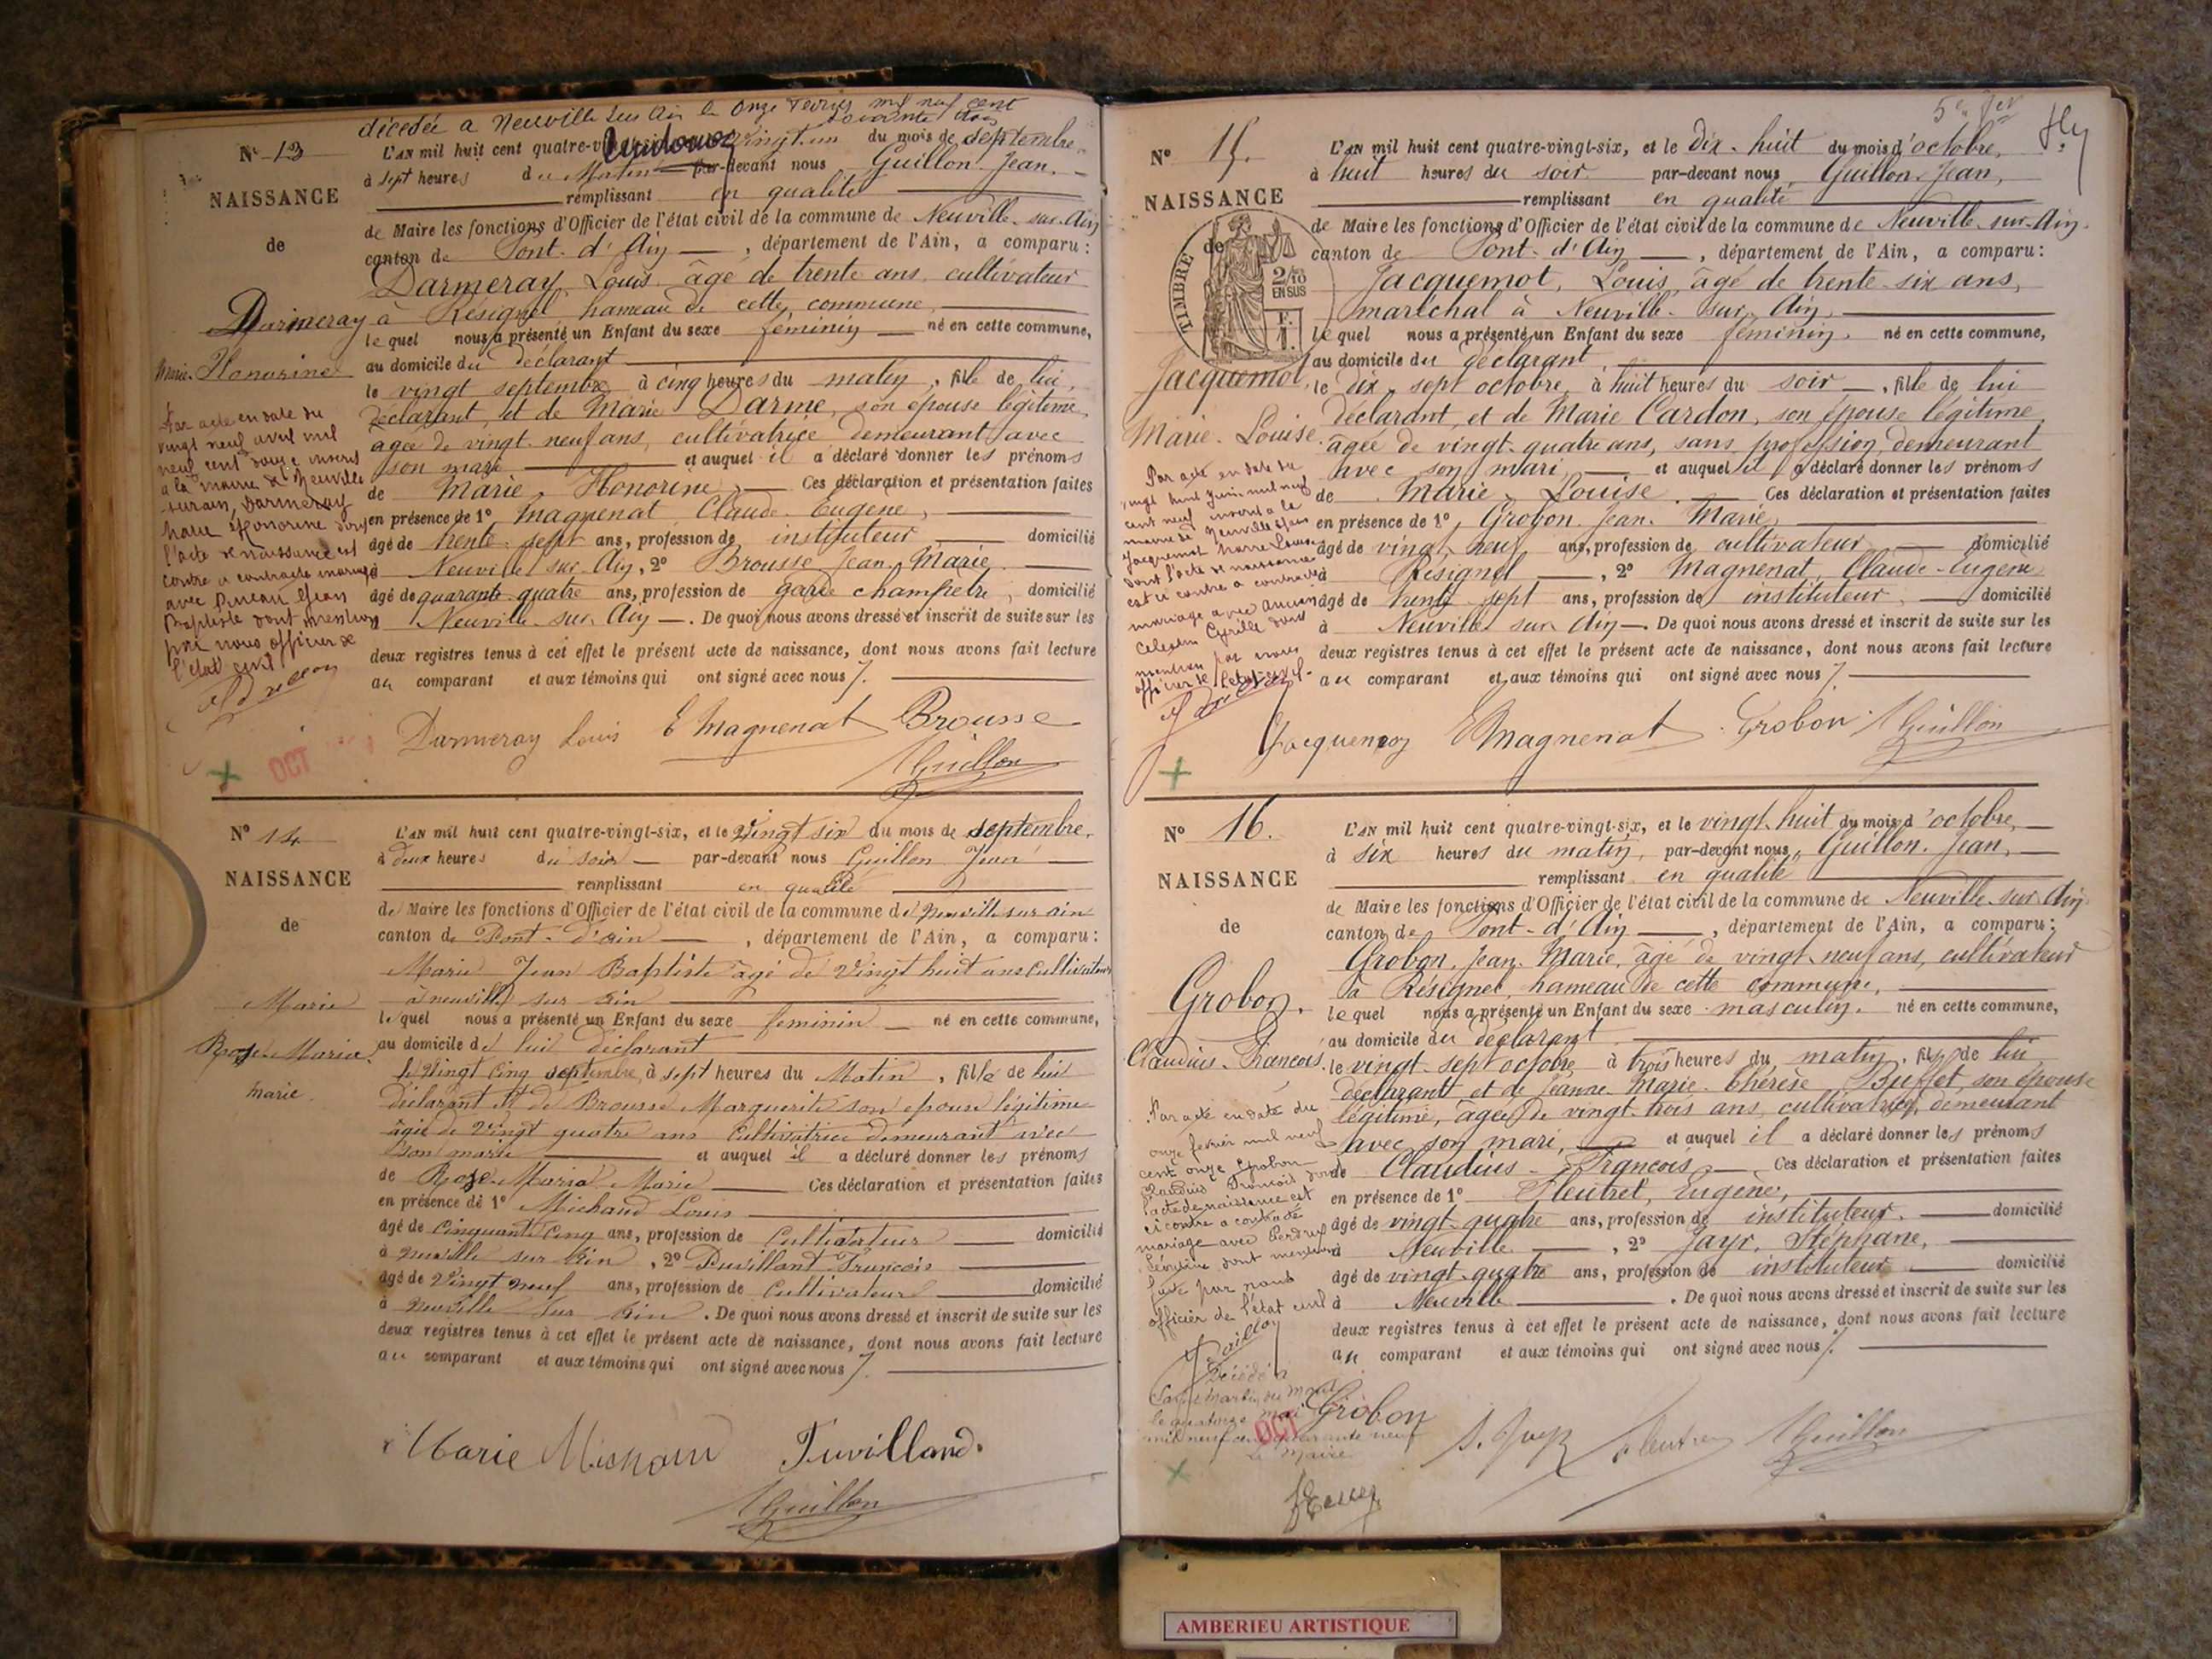 décédée a Neuville sur Ain le onze Février mil neuf cent
soixante
N° 13
L'AN mil huit cent quatre-vingt-six, et le vingt-un du mois de septembre
à sept heures du Matin par-devant nous Guillon Jean,
NAISSANCE
remplissant en qualité
de Maire les fonctions d'Officier de l'état civil de la commune de Neuville-sur-Ain
de
canton de Pont-d'Ain, département de l'Ain, a comparu:
Darmeray, Louis, âgé de trente ans, cultivateur
Darmeray
à Résignel, hameau de cette commune,
lequel nous a présenté un Enfant du sexe féminin né en cette commune,
Marie-Honorine
au domicile du déclarant
le vingt septembre à cinq heures du matin, fille de lui,
déclarant, et de Marie Darme, son épouse légitime,
âgée de vingt-neuf ans, cultivatrice demeurant avec
son mari et auquel il a déclaré donner les prénoms
de Marie-Honorine. Ces déclaration et présentation faites
en présence de 1° Magnenat, Claude-Eugène,
âgé de trente-sept ans, profession de instituteur domicilié
à Neuville sur Ain, 2° Brousse Jean-Marie
âgé de quarante-quatre ans, profession de garde champêtre, domicilié
à Neuville-sur-Ain. De quoi nous avons dressé et inscrit de suite sur les
deux registres tenus à cet effet le présent acte de naissance, dont nous avons fait lecture
au comparant et aux témoins qui ont signé avec nous
Par acte en date du
vingt neuf avril mil
neuf cent douze inscrit
a la mairie de Neuville
sur ain, Darmeray
Marie Honorine dont
l'acte de naissance est
contre a contracté mariage
avec Pineau Jean
Baptiste dont mention
par nous officier de
l'état civil
Darmeray Louis E Magnenat Brousse
Guillon
OCT
N° 14
L'AN mil huit cent quatre-vingt-six, et le Vingt six du mois de septembre,
à deux heures du soir par-devant nous Guillon Jean
NAISSANCE
remplissant en qualité
de Maire les fonctions d'Officier de l'état civil de la commune de Neuville sur ain
de
canton de Pont-d'ain, département de l'Ain, a comparu:
Marie Jean Baptiste âgé de Vingt huit ans Cultivateur
Marie
à neuville sur ain
lequel nous a présenté un Enfant du sexe feminin né en cette commune,
Rose-Maria
au domicile de lui déclarant
le Vingt Cinq septembre, à sept heures du Matin, fille de lui
marie
déclarant et de Brousse Marguerite son épouse légitime
âgée de Vingt quatre ans Cultivatrice demeurant avec
son marie et auquel il a déclaré donner les prénoms
de Rose-Maria Marie Ces déclaration et présentation faites
en présence de 1° Michaud Louis
âgé de Cinquante Cinq ans, profession de Cultivateur domicilié
à Neuville sur Ain, 2° Puvilland François
âgé de Vingt neuf ans, profession de Cultivateur domicilié
à Neuville sur Ain. De quoi nous avons dressé et inscrit de suite sur les
deux registres tenus à cet effet le présent acte de naissance, dont nous avons fait lecture
au comparant et aux témoins qui ont signé avec nous
Marie Puvilland
Guillon
N° 15.
L'AN mil huit cent quatre-vingt-six, et le dix-huit du mois d'octobre,
à huit heures du soir par-devant nous, Guillon Jean,
NAISSANCE
remplissant en qualité
de Maire les fonctions d'Officier de l'état civil de la commune de Neuville-sur-Ain.
de
TIMBRE
2/10 EN SUS
F. 1.
canton de Pont-d'Ain, département de l'Ain, a comparu:
Jacquemot, Louis, âgé de trente-six ans,
maréchal à Neuville-sur-Ain,
lequel nous a présenté un Enfant du sexe féminin, né en cette commune,
au domicile du déclarant,
Jacquemot,
le dix-sept octobre, à huit heures du soir, fille de lui
déclarant, et de Marie Cardon, son épouse légitime,
Marie-Louise.
âgée de vingt-quatre ans, sans profession, demeurant
avec son mari, et auquel il a déclaré donner les prénoms
de Marie-Louise. Ces déclaration et présentation faites
en présence de 1°, Grobon Jean-Marie,
âgé de vingt-neuf ans, profession de cultivateur domicilié
à Résignel, 2° Magnenat, Claude-Eugène
âgé de trente-sept ans, profession de instituteur, domicilié
à Neuville-sur-Ain. De quoi nous avons dressé et inscrit de suite sur les
deux registres tenus à cet effet le présent acte de naissance, dont nous avons fait lecture
au comparant et aux témoins qui ont signé avec nous
Par acte en date du
vingt huit juin mil neuf
cent neuf inscrit a la
mairie de Neuville sur ain
Jacquemot Marie Louise
dont l'acte de naissance
est ci contre a contracté
mariage avec
Cyrille dont
mention par nous
officier de l'état-civil
E Magnenat Grobon Guillon
N° 16.
L'AN mil huit cent quatre-vingt-six, et le vingt-huit du mois d'octobre,
à six heures du matin, par-devant nous, Guillon Jean,
NAISSANCE
remplissant en qualité
de Maire les fonctions d'Officier de l'état civil de la commune de Neuville-sur-Ain
de
canton de Pont-d'Ain, département de l'Ain, a comparu:
Grobon, Jean-Marie, âgé de vingt-neuf ans, cultivateur
Grobon.
à Résignel, hameau de cette commune,
lequel nous a présenté un Enfant du sexe masculin, né en cette commune,
au domicile du déclarant
Claudius-François.
le vingt-sept octobre à trois heures du matin, fils de lui
déclarant et de Jeanne-Marie-Thérèse Buffet, son épouse
légitime, âgée de vingt-trois ans, cultivatrice, demeurant
avec son mari, et auquel il a déclaré donner les prénoms
de Claudius-François. Ces déclaration et présentation faites
en présence de 1° Fleutret, Eugène,
âgé de vingt-quatre ans, profession de instituteur, domicilié
à Neuville, 2° Jayr, Stéphane,
âgé de vingt-quatre ans, profession de instituteur domicilié
à Neuville. De quoi nous avons dressé et inscrit de suite sur les
deux registres tenus à cet effet le présent acte de naissance, dont nous avons fait lecture
au comparant et aux témoins qui ont signé avec nous
Par acte en date du
onze fevrier mil neuf
cent onze Grobon
Claudius François dont
l'acte de naissance est
ci contre a contracté
mariage avec
dont mention
faite par nous
officier de l'état civil
Décédé à
Saint Martin du Mont
le quatorze mai
mil neuf cent quarante neuf
Le Maire
OCT
Grobon S. Jayr Fleutret Guillon
AMBERIEU ARTISTIQUE